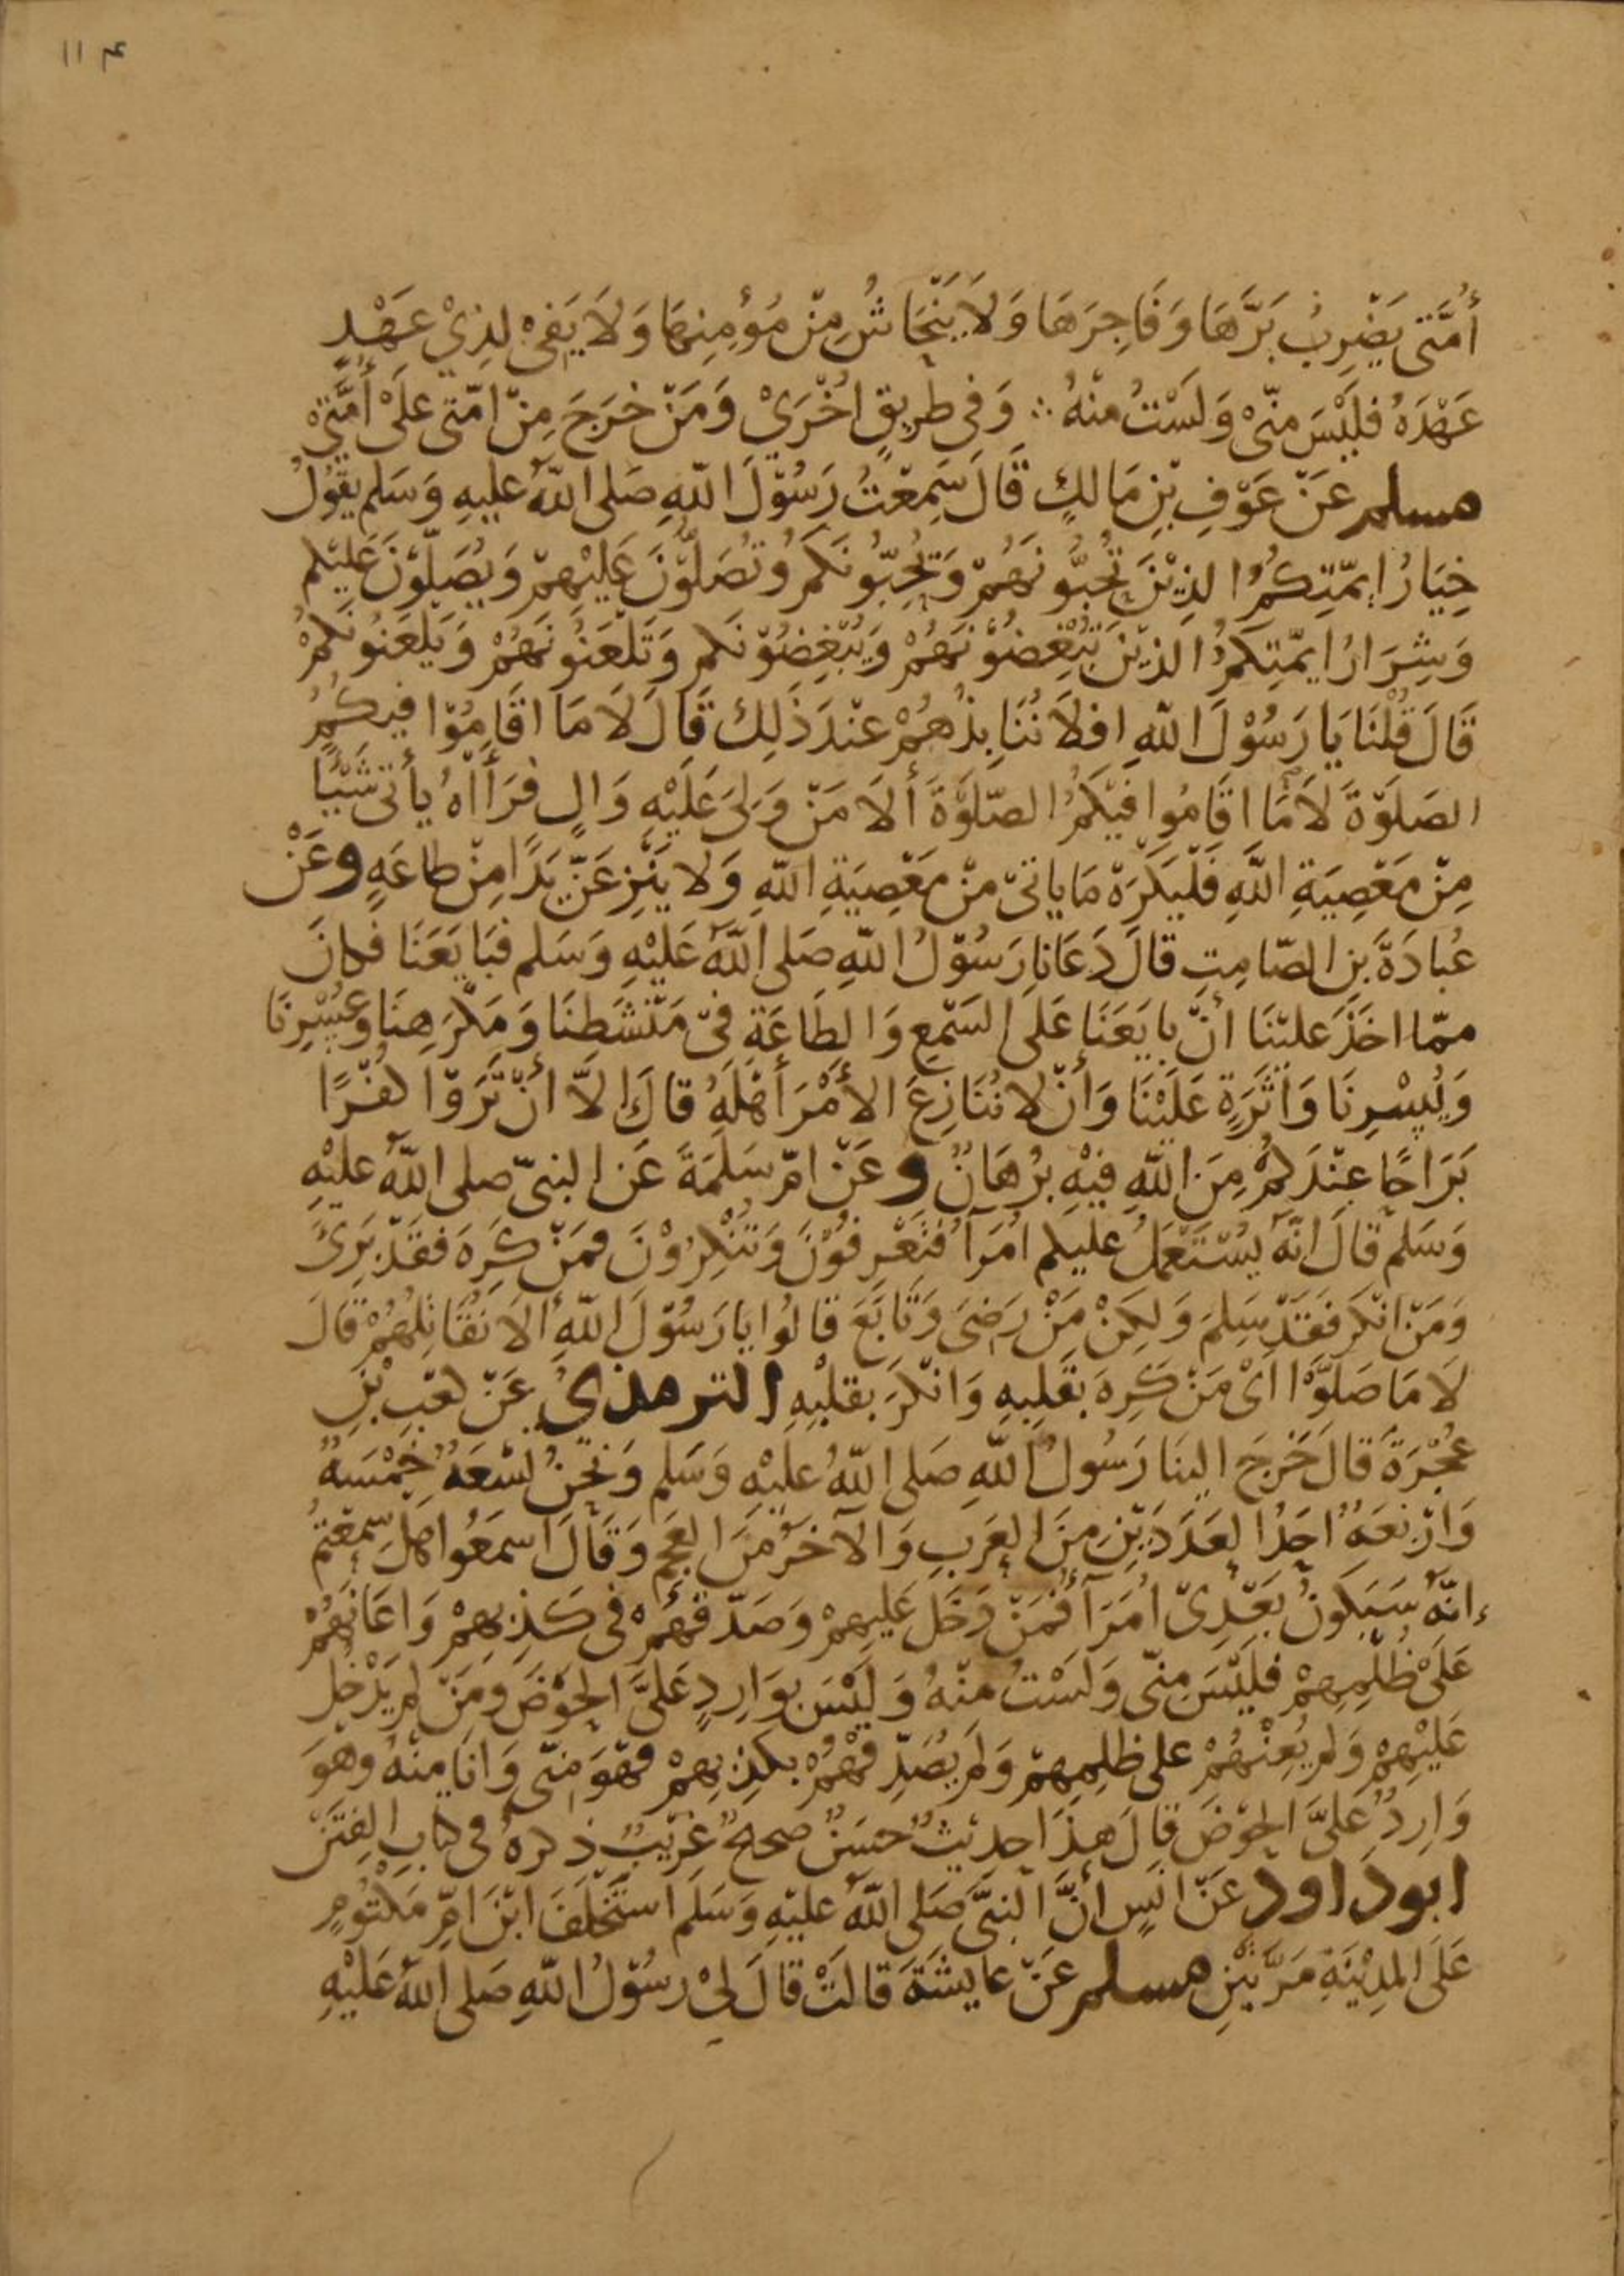 ١١٤
أُمَّتى يَضْرِبُ بَرَّهَا وَفَاجِرَهَا وَلَا يَنْحَاشُ مِنْ مُؤْمِنِهَا وَلَا يَفِىْ لِذِيْ عَهْدٍ
عَهْدَهُ فَلَيْسَ مِنّىْ وَلَسْتُ مِنْهُ ∴ وَفى طَرِيقٍ اُخْرَيْ وَمَنْ خَرَجَ مِنْ امّتى عَلَىْ أُمَّتِىْ
مسلم عَنْ عَوْفِ بْنِ مَالِكٍ قَالَ سَمِعْتُ رَسُوْلَ اللّٰهِ صَلى اللّٰهُ عليهِ وَسَلم يقُوْلُ
خِيَارُ ايمّتِكُمُ الذِيْنَ تُحِبُّونَهُمْ وَيُحِبّونَكم وَتُصَلُّوْنَ عَلَيْهِمْ وَيُصَلّوْنَ عَلَيْكم
وَشِرَارُ ايمّتِكُمُ الذِيْنَ تُبْغِضُوْنَهُمْ وَيُبْغِضُوْنَكم وَتَلْعَنُونَهُمْ وَيَلْعَنُونَكُمْ
قَالَ قُلْنَا يَا رَسُوْلَ اللّٰهِ افلَا نُنَابِذُهُمْ عِنْدَ ذَلِكَ قَالَ لَا مَا اقَامُوْا فِيكُمُ
الصَلوٰةَ لَا مَا اقَامُوا فِيْكُمُ الصّلوٰةَ أَلَا مَنْ وَلىَ عَلَيْهِ وَالٍ فَرَأَاهُ يأتى شَيْئًا
مِنْ مَعْصِيَةِ اللّٰهِ فَلْيَكْرَهْ مَا ياتىْ مِنْ مَعْصِيَةِ اللّٰهِ وَلا يَنْزِعَنّ يَدًا مِنْ طاعَةٍ وعَنْ
عُبادَةَ بنِ الصّامِتِ قالَ دَعَانا رَسُوْلُ اللّٰهِ صَلى اللّٰهُ عَلَيْهِ وَسَلم فبَايَعَنَا فَكانَ
ممّا اخَذَ علَيْنَا أنْ بايَعَنَا عَلَى السَمْعِ وَالطَاعَةِ فىْ مَنْشَطِنَا وَمَكْرَهِنَا وَعُسْرِنَا
وَيُسْرِنَا وَأثَرَةٍ عَلَيْنَا وَأنْ لا نُنَازِعَ الأمْرَ أهْلَهُ قالَ الاَّ أنْ تَرَوْا كفْرًا
بَرَاحًا عِنْدَكُمْ مِنَ اللّٰهِ فِيْهِ بُرْهَانٌ وعَنْ امّ سَلَمَةَ عَنِ النبىّ صلى اللّٰهُ عليْهِ
وَسَلم قَالَ انّهُ يُسْتَعْمَلُ عليكم اُمَرَآُ فتَعْرِفُوْنَ وَتُنْكِرُوْنَ فمَنْ كَرِهَ فقَدْ بَرِئَ
وَمَنْ انْكَرَ فقَدْ سَلِمَ وَلكِنْ مَنْ رَضىَ وَتَابَعَ قالُوا يَا رَسُوْلَ اللّٰهِ الَا نُقَاتِلُهُمْ قَالَ
لَا مَا صَلَّوْا اىْ مَنْ كَرِهَ بقَلبِهِ وَانْكَرَ بقلْبِهِ الترمذيُّ عَنْ كعْبِ بْنِ
عُجْرَةَ قالَ خَرَجَ الينَا رَسُولُ اللّٰهِ صَلى اللّٰهُ عليْهِ وَسَلم وَنحْنُ تسْعَةٌ خَمْسَةٌ
وَارْبَعَةٌ احَدُ العَدَدَيْنِ مِنَ العَرَبِ وَالآخَرُ مِنَ العَجَمِ وَقَالَ اسمَعُوا هلْ سمِعْتُمْ
انّهُ سَيَكونُ بَعْدِىْ اُمَرَآُ فَمَنْ دَخَلَ عَلَيهِمْ وَصَدّقَهُمْ فى كَذِبِهِمْ وَاعَانَهُمْ
عَلَىْ ظُلْمِهِمْ فَلَيْسَ مِنّى وَلَسْتُ مِنْهُ وَلَيْسَ بوَارِدٍ عَلىَّ الحَوْضَ وَمَنْ لم يَدْخُلْ
عَلَيْهِمْ وَلم يُعِنْهُمْ على ظلمِهِمْ وَلم يُصَدِّقْهُمْ بكَذِبِهِمْ فَهْوَ مِنّى وَانَا مِنْهُ وَهوَ
وَارِدٌ عَلىَّ الحَوْضَ قالَ هذَا حديْثٌ حسَنٌ صحيحٌ غرِيْبٌ ذكرهُ فى كتابِ الفِتَنْ
ابوداود عَنْ انَسٍ أنَّ النبىَّ صَلى اللّٰهُ عليْهِ وَسَلَم اسْتَخْلَفَ ابْنَ امّ مَكْتُومٍ
عَلَى المدِيْنَةِ مَرَّتَيْنِ مسلم عَنْ عايشَةَ قالَتْ قالَ لِىْ رسُوْلُ اللّٰهِ صَلى اللّٰهُ عَلَيْهِ